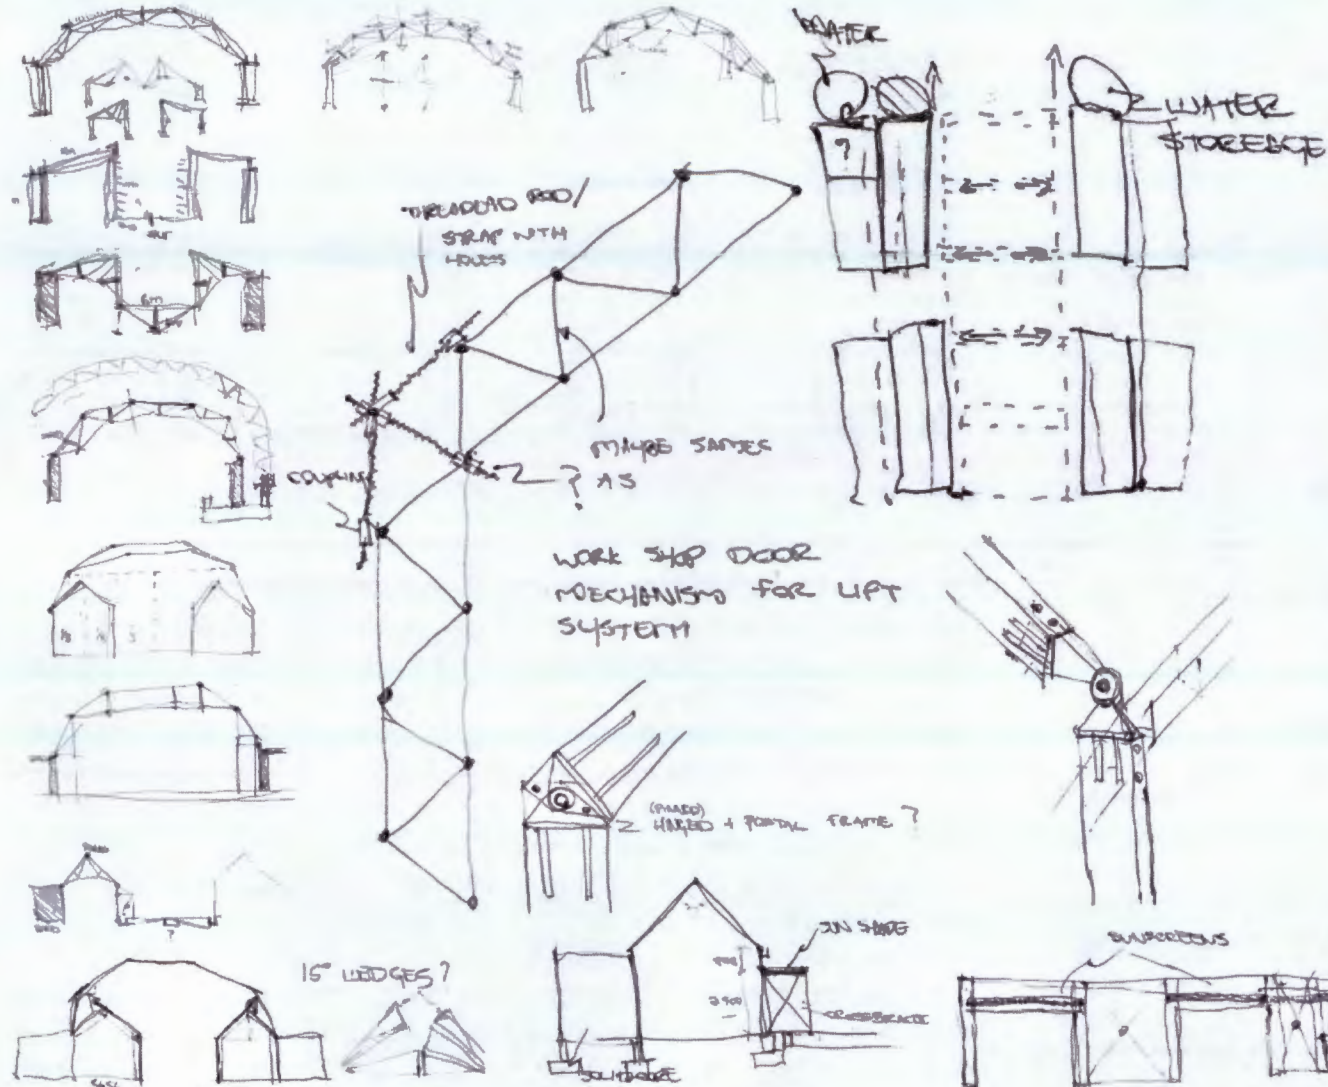 WATER
WATER
STOREAGE
THREADED ROD/
STRAP WITH
HOLES
6m
COUPLING
?
MAYBE SAMES
? AS
WORK SHOP DOOR
MECHANISM FOR LIFT
SYSTEM
HINGED + PORTAL FRAME ?
?
15° WEDGES?
SUN SHADE
2400
CROSSBRACE
SUNSCREENS